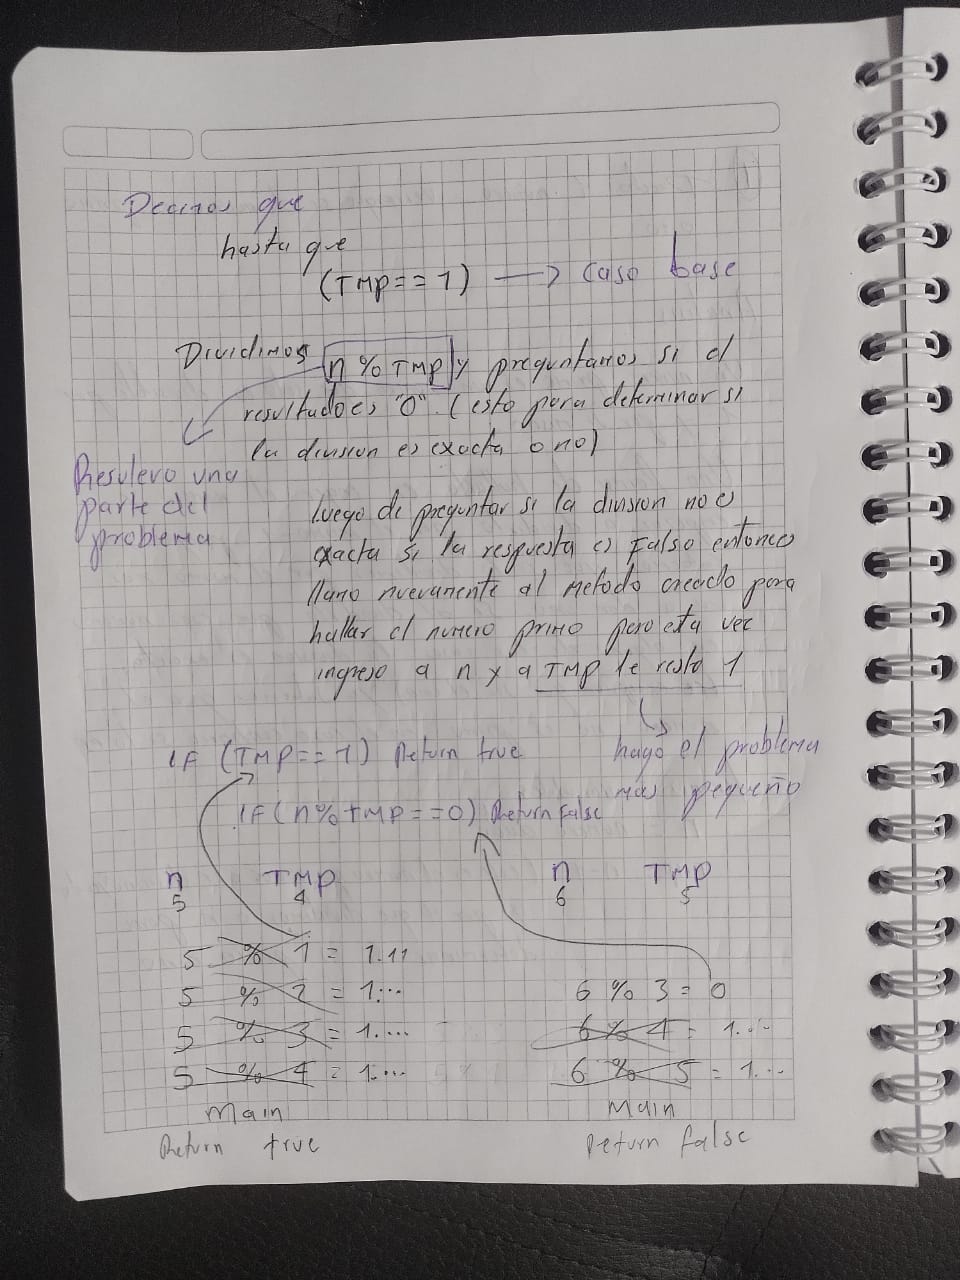 Decimos que
hasta que
(TMP == 1) → caso base
Dividimos n % TMP y preguntamos si el
resultado es "0". (esto para determinar si
la division es exacta o no)
Resuelvo una
parte del
problema
luego de preguntar si la division no es
exacta si la respuesta es Falso entonces
llamo nuevamente al metodo creado para
hallar el numero primo pero esta vez
ingreso a n y a TMP le resto 1
hago el problema
mas pequeño
IF (TMP == 1) Return true
IF (n % tMP == 0) Return False
n TMP
5 4
5 % 1 = 1.11
5 % 2 = 1....
5 % 3 = 1....
5 % 4 = 1....
Main
Return true
n TMP
6 5
6 % 3 = 0
6 % 4 = 1....
6 % 5 = 1....
Main
Return false